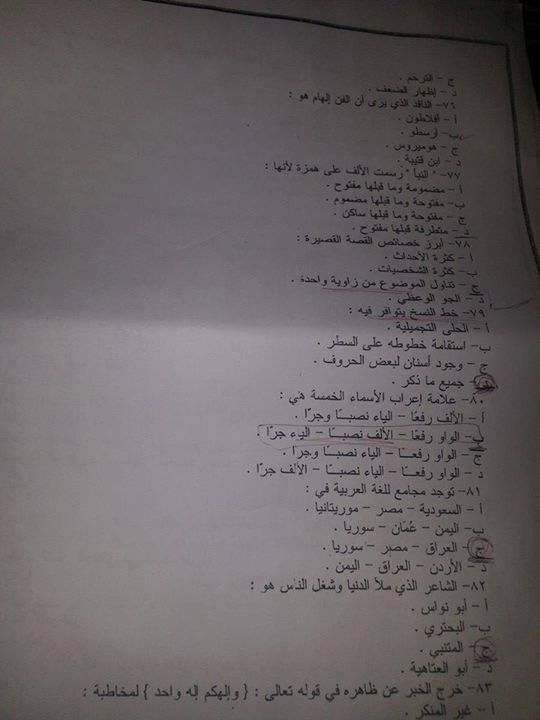 ج – الترحم .
د – إظهار الضعف .
٧٦- الناقد الذي يرى أن الفن إلهام هو :
أ – أفلاطون .
ب- أرسطو .
ج – هوميروس .
د – ابن قتيبة .
٧٧- " النبأ " رسمت الألف على همزة لأنها :
أ – مضمومة وما قبلها مفتوح .
ب- مفتوحة وما قبلها مضموم .
ج – مفتوحة وما قبلها ساكن .
د – متطرفة قبلها مفتوح .
٧٨- أبرز خصائص القصة القصيرة :
أ – كثرة الأحداث .
ب- كثرة الشخصيات .
ج – تناول الموضوع من زاوية واحدة .
د – الجو الوعظي .
٧٩- خط النسخ يتوافر فيه :
أ – الحلى التجميلية .
ب- استقامة خطوطه على السطر .
ج – وجود أسنان لبعض الحروف .
د – جميع ما ذكر .
٨٠- علامة إعراب الأسماء الخمسة هي :
أ – الألف رفعًا – الياء نصبًا وجرًا .
ب- الواو رفعًا – الألف نصبًا – الياء جرًا .
ج – الواو رفعًا – الياء نصبًا وجرًا .
د – الواو رفعًا – الياء نصبًا – الألف جرًا .
٨١- توجد مجامع للغة العربية في :
أ – السعودية – مصر – موريتانيا .
ب- اليمن – عُمَان – سوريا .
ج – العراق – مصر – سوريا .
د – الأردن – العراق – اليمن .
٨٢- الشاعر الذي ملأ الدنيا وشغل الناس هو :
أ – أبو نواس .
ب- البحتري .
ج – المتنبي .
د – أبو العتاهية .
٨٣- خرج الخبر عن ظاهره في قوله تعالى : { وإلهكم إله واحد } لمخاطبة :
أ – غير المنكر .